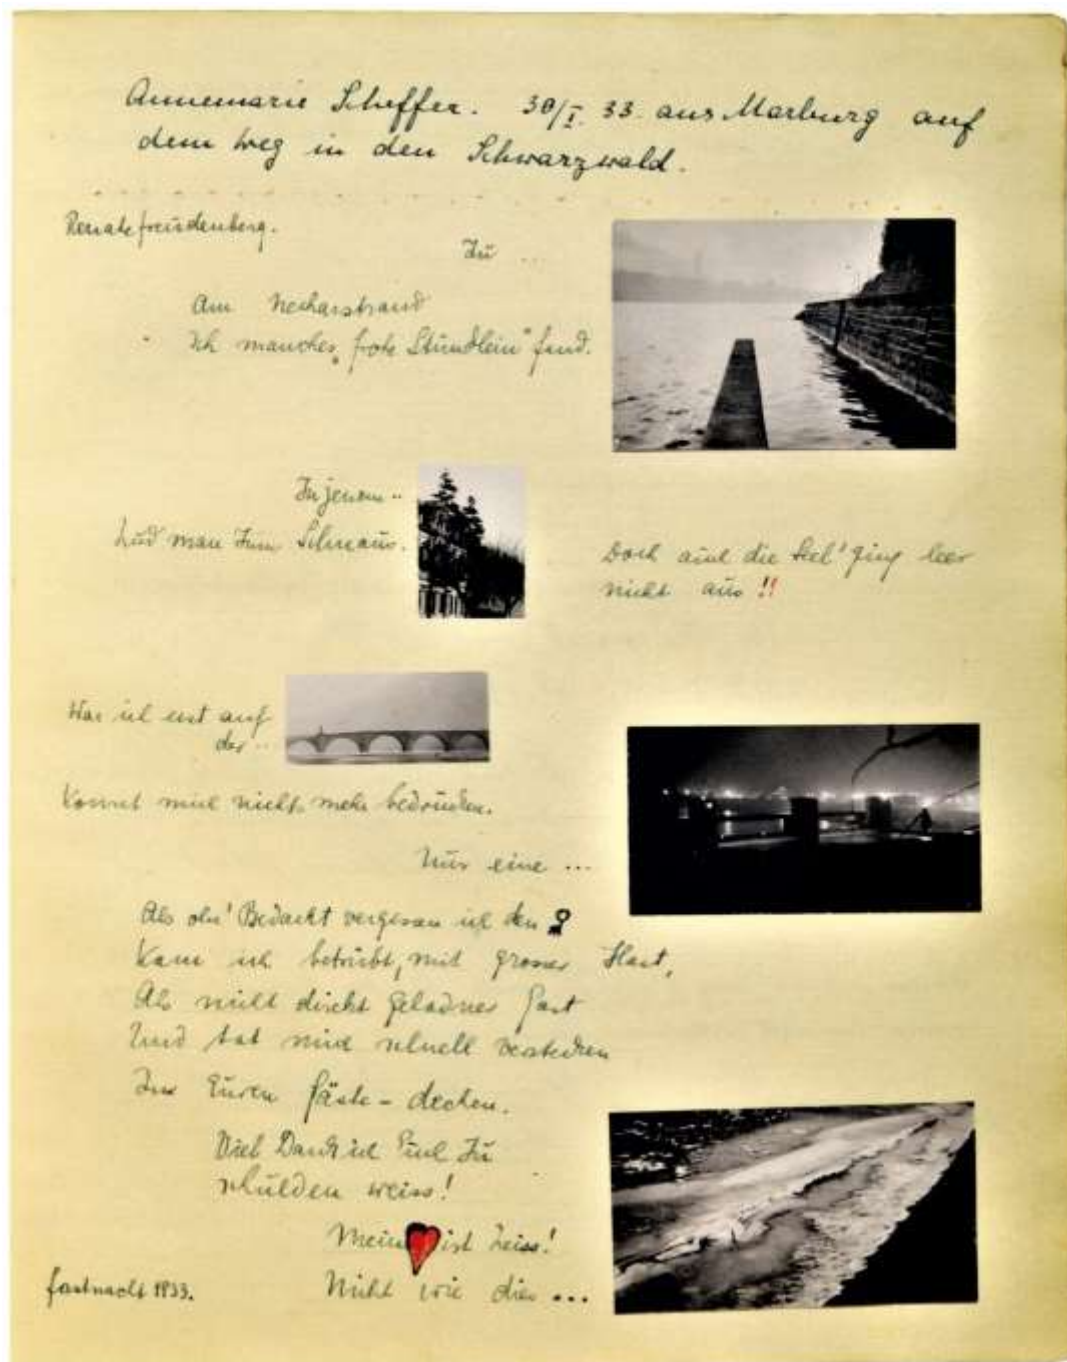 Annemarie Scheffer. 30/I. 33. aus Marburg auf
dem Weg in den Schwarzwald.
Renate Freudenberg.
In ...
Am Neckarstrand
Ich manches "frohe Stündlein" fand.
In jenem ..
Lud man zum Schmaus.
Doch auch die Seel' ging leer
nicht aus!!
War ich erst auf
der ..
Konnt mich nichts mehr bedrücken.
Nur eine ...
Als ohn' Bedacht vergessen ich den
Kam ich betrübt, mit grosser Hast,
Als nicht direkt geladner Gast
Und tat mich schnell verstecken
In Euren Gäste-decken.
Viel Dank ich Euch zu
schulden weiss!
Mein ist heiss!
Nicht wie dies ...
Fastnacht 1933.